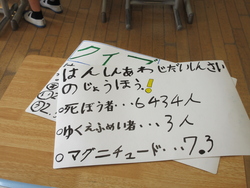 クイズ
はんしんあわじだいしんさい
のじょうほう!
○死ぼう者...6434人
○ゆくえふめい者...3人
○マグニチュード...7.3